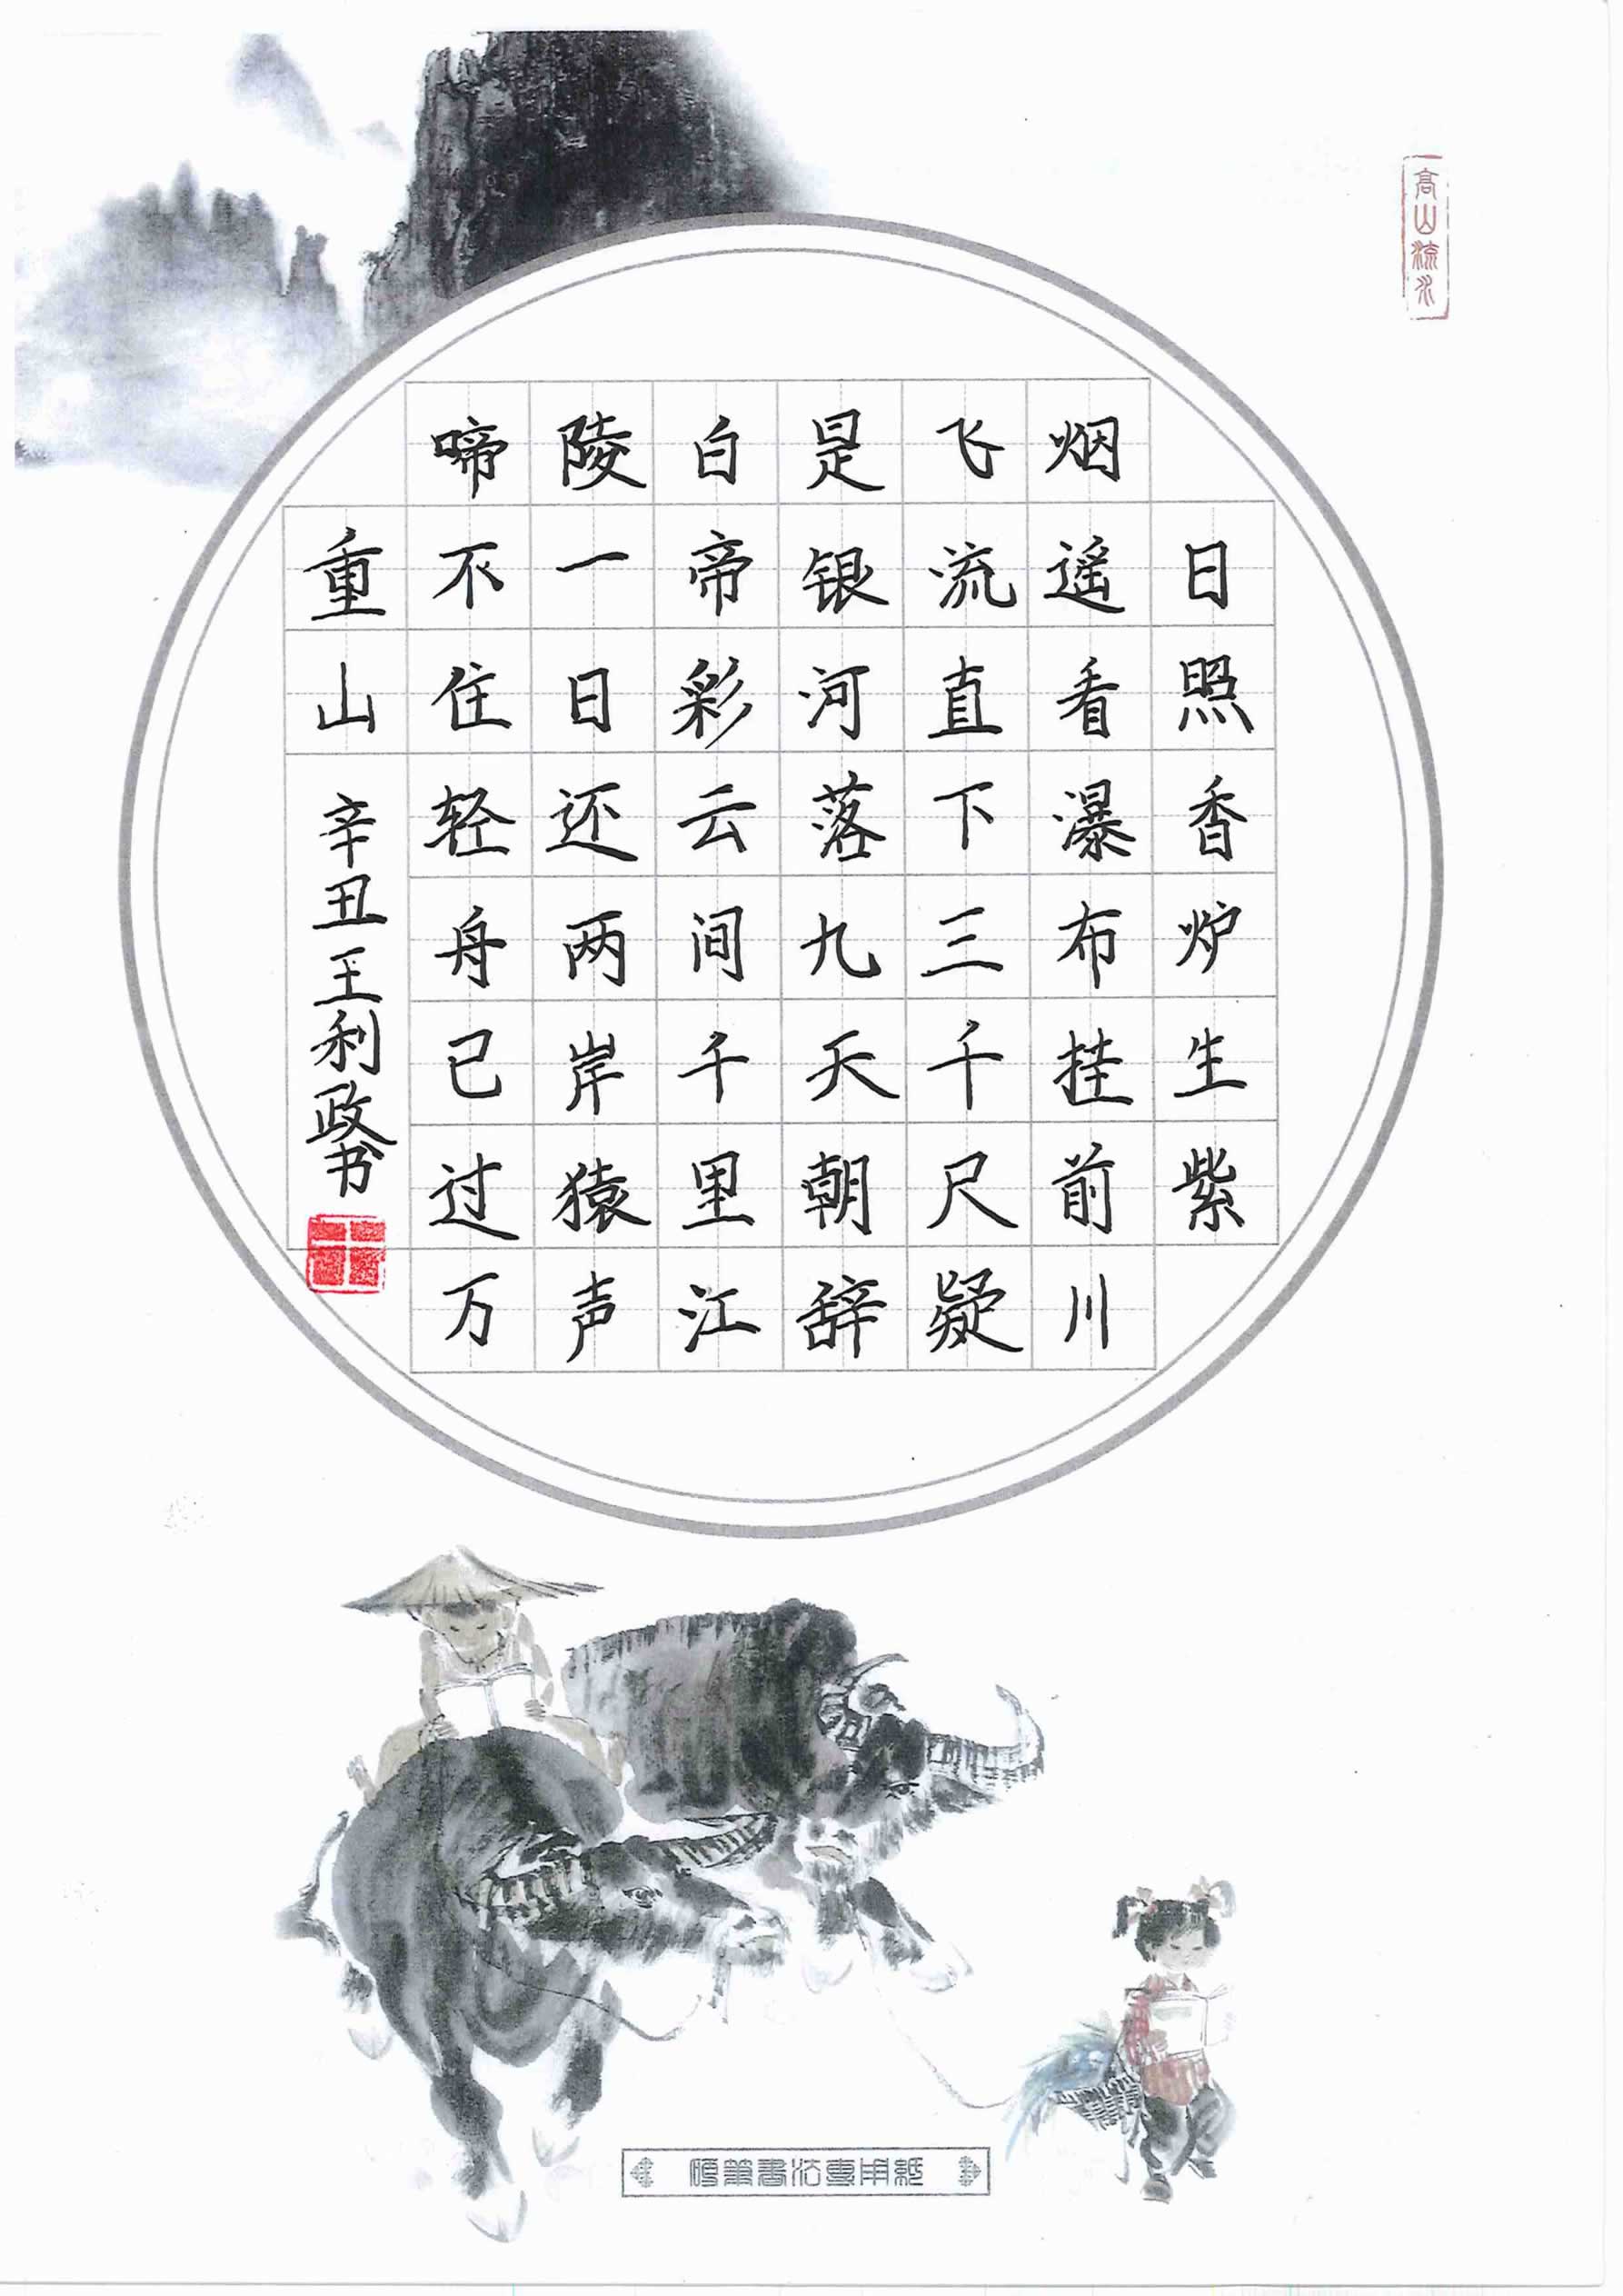 高山流水
日照香炉生紫
烟遥看瀑布挂前川
飞流直下三千尺疑
是银河落九天朝辞
白帝彩云间千里江
陵一日还两岸猿声
啼不住轻舟已过万
重山
辛丑王利政书
硬筆書法專用紙